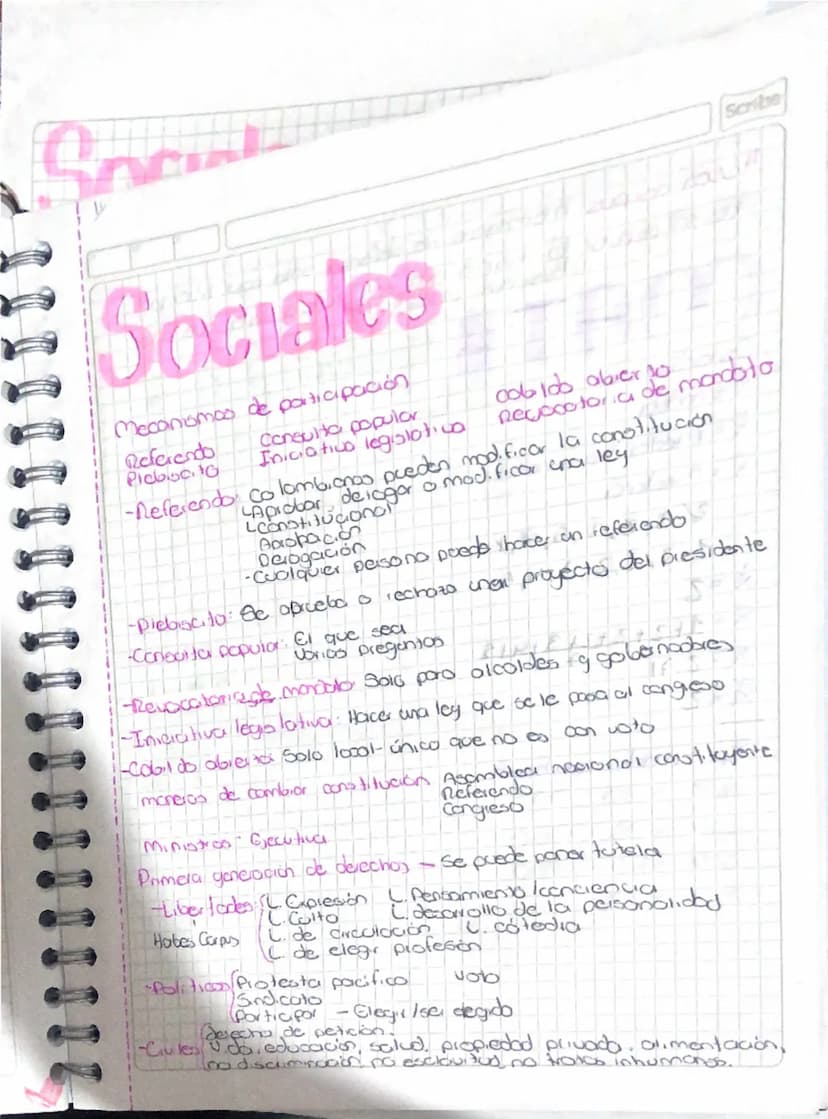 Sociales
Scribe
Sociales
Mecanismos de participación
Referendo Consulta popular Cabildo abierto
Plebiscito Iniciativa legislativa Revocatoria de mandato
-Referendo: Colombianos pueden modificar la constitución
Aprobar, derogar o modificar una ley
Constitucional
Aprobación
Derogación
-Cualquier persona puede hacer un referendo
-Plebiscito: Se aprueba o rechaza un proyecto del presidente
-Consulta popular: El que sea
Varias preguntas
-Revocatoria de mandato Solo para alcaldes y gobernadores
-Iniciativa legislativa: Hacer una ley que se le pasa al congreso
-Cabildo abierto: Solo local-único que no es con voto
maneras de cambiar constitución Asamblea nacional constituyente
Referendo
Congreso
Ministros- Ejecutiva
Primera generación de derechos - Se puede poner tutela
-Libertades: L Expresión L. Pensamiento/conciencia
L. Culto L. desarrollo de la personalidad
Habes Corpus L. de circulación L. cátedra
L. de elegir profesión
-Políticos Protesta pacífica voto
Sindicato
Participar - Elegir/ser elegido
derecho de petición.
-Civiles Vida, educación, salud, propiedad privada, alimentación,
no discriminación, no esclavitud, no tratos inhumanos.